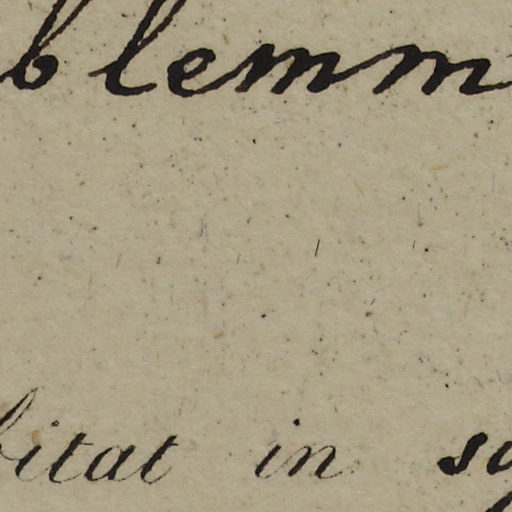 blemm
bitat in